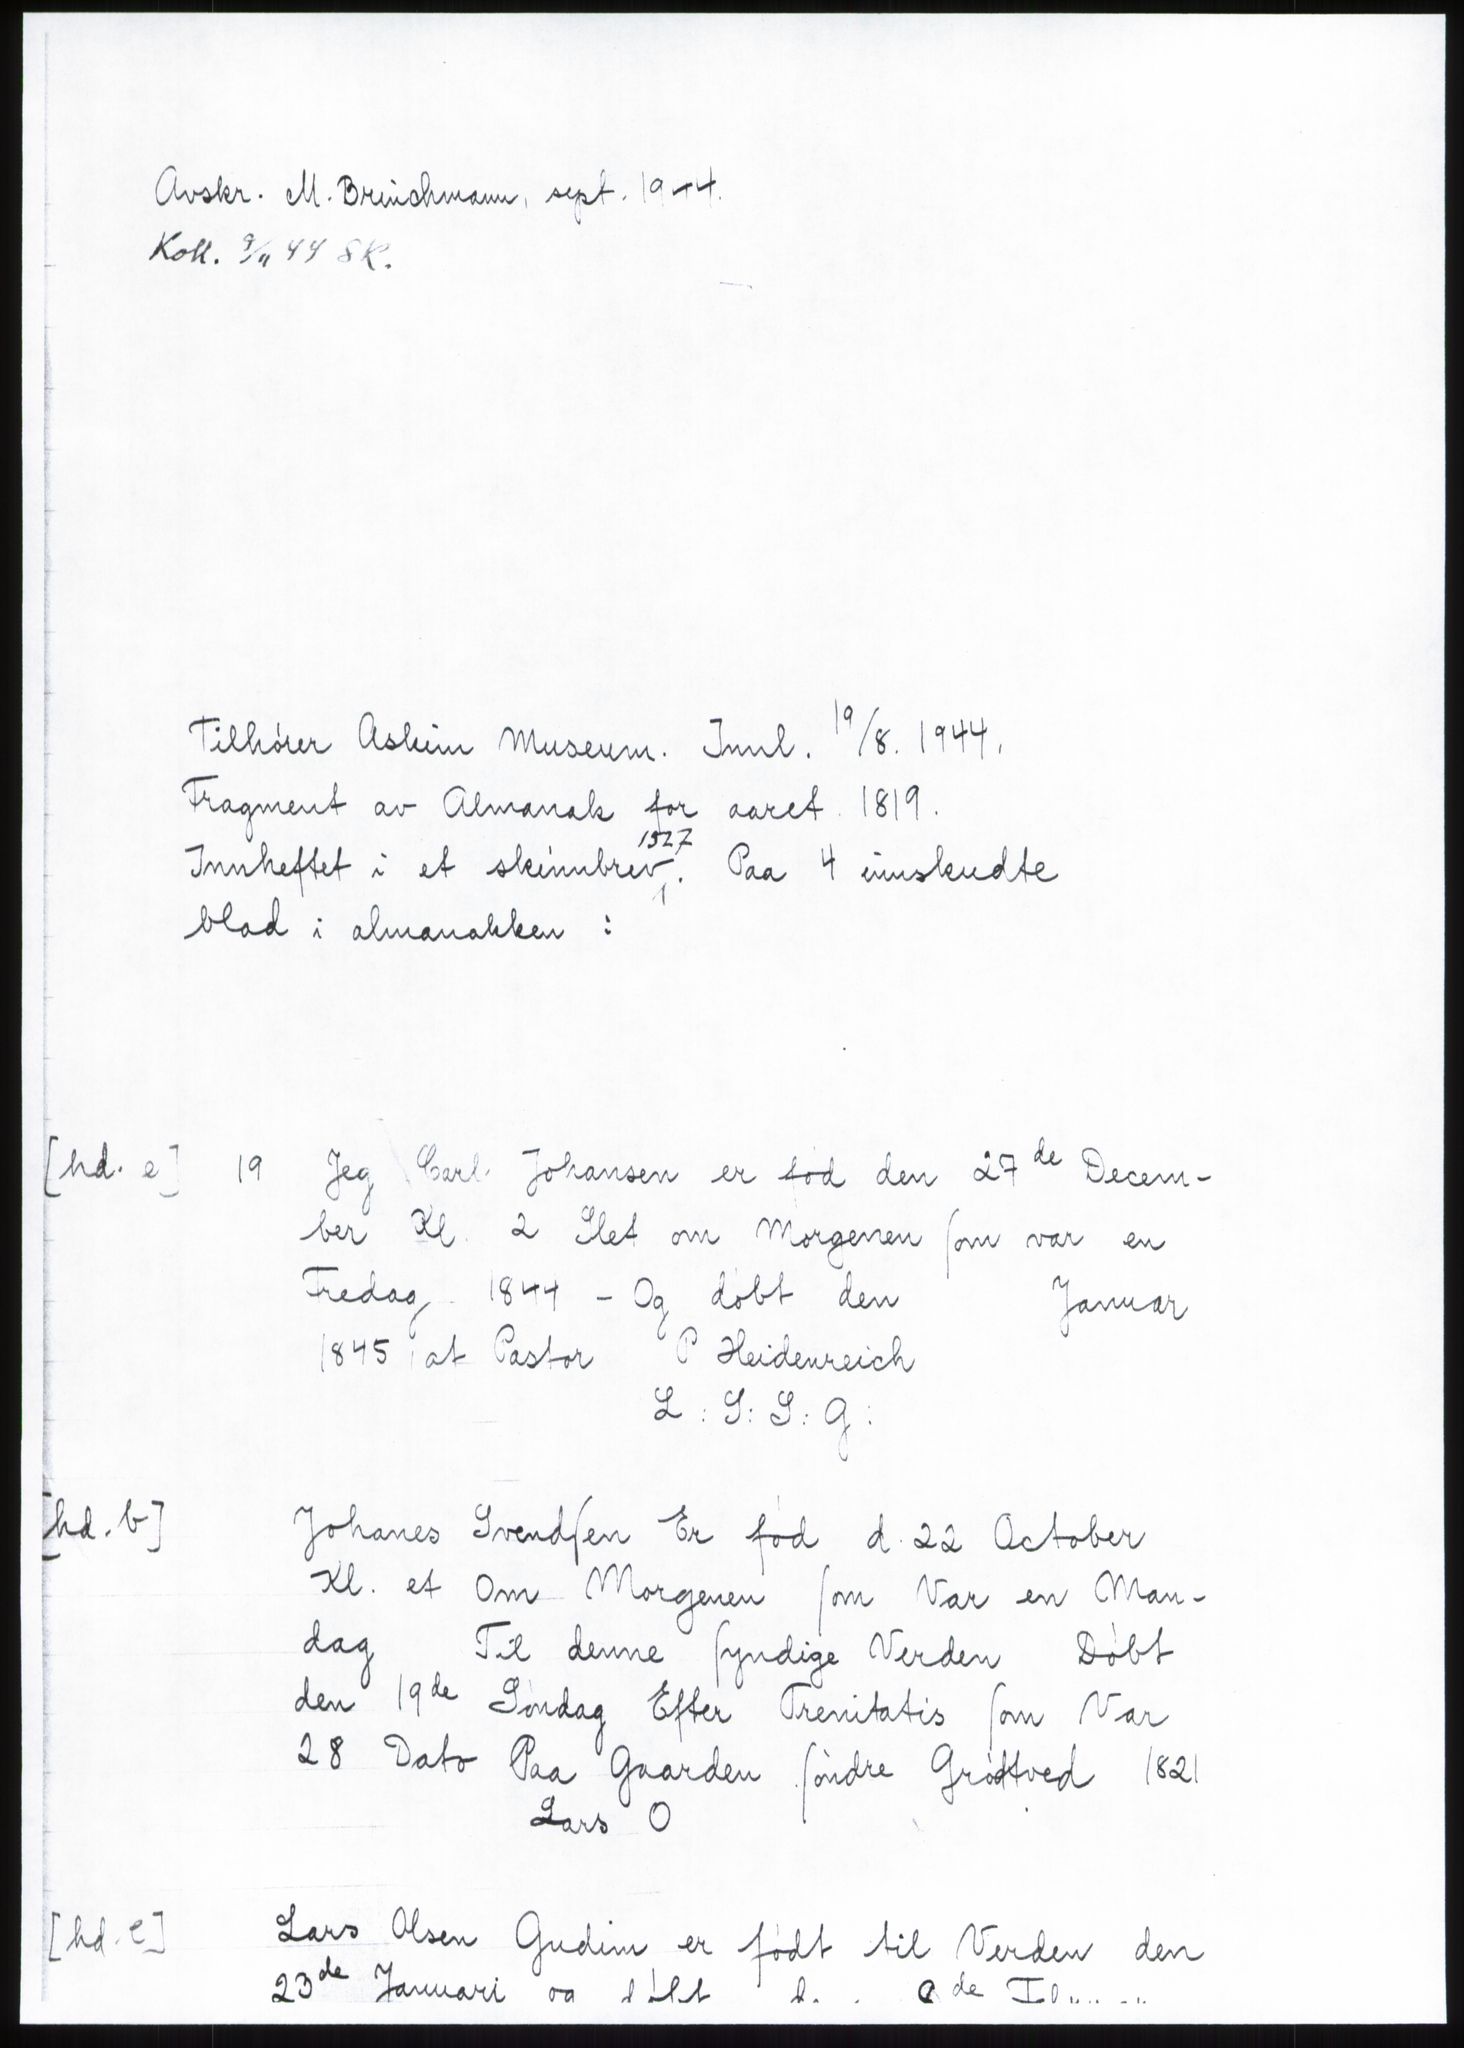 Avskr. M. Brinchmann, sept. 1944.
Koll. 9/11 44 SK.
Tilhører Askim Museum. Innl. 19/8. 1944.
Fragment av Almanak for aaret 1819.
1527
Innheftet i et skinnbrev. Paa 4 innskudte
blad i almanakken :
[hd. e] 19 Jeg Carl Johansen er fød den 27de Decem-
ber Kl. 2 Slet om Morgenen som var en
Fredag 1844 - Og døbt den Januar
1845 at Pastor P Heidenreich
L : S : S : G :
[hd. b] Johanes Svendsen Er fød d. 22 October
Kl. et Om Morgenen som Var en Man-
dag Til denne syndige Verden Døbt
den 19de Søndag Efter Trenitatis som Var
28 Dato Paa Gaarden søndre Grøttved 1821
Lars O
[hd. e] Lars Olsen Gudim er født til Verden den
23de Januari og døbt